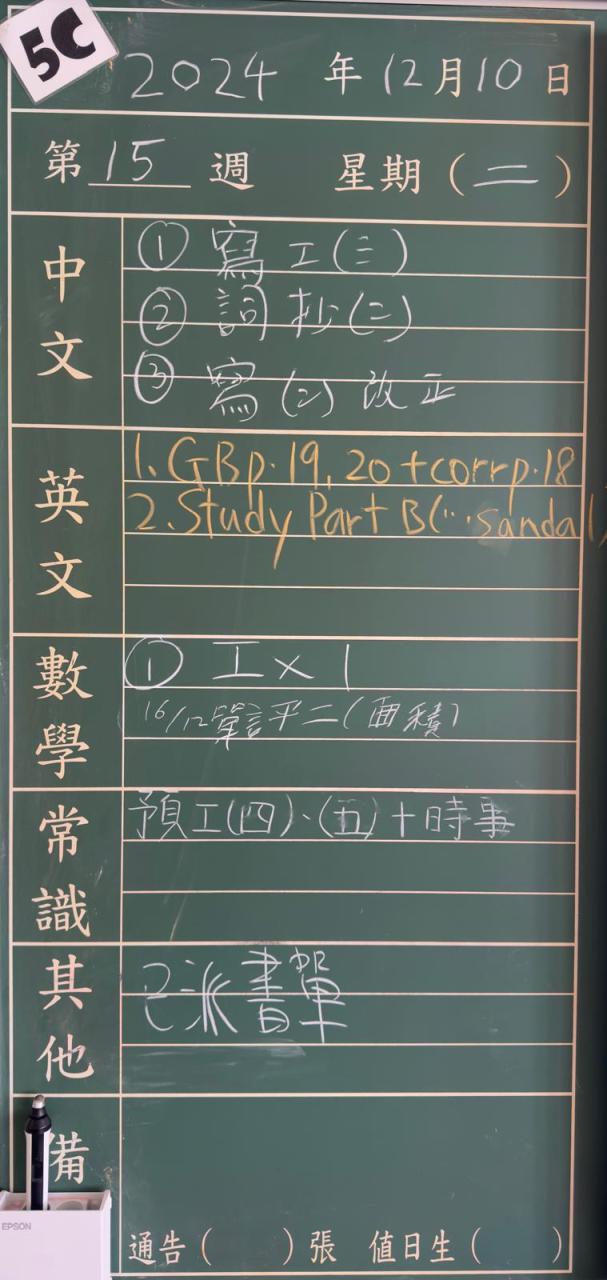 5C
2024 年 12 月 10 日
第 15 週 星期（二）
中文
① 寫工(三)
② 詞抄(二)
③ 寫(二)改正
英文
1. GBp.19, 20 + corrp.18
2. Study Part B(…sandal)
數學
① 工×1
16/12 單評二(面積)
常識
預工(四)、(五)+時事
其他
已派書單
備
EPSON
通告（ ）張 值日生（ ）